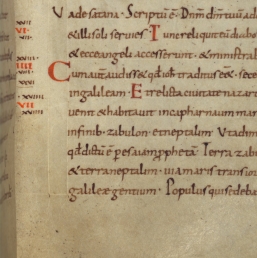 Vade satana · Scriptū ē · Dn̄m dm̄ tuū ado
& illi soli servies · Tunc reliquit eū diabo
& ecce angeli accesserunt · & ministrab
Cum audiss& qd ioh traditus ee& · sece
in galileam · Et relicta civitate nazar
venit & habitavit in capharnaum mar
infinib · zabulon · & neptalim · Ut adim
qd dictū ē p esaiam pphetā · Terra zab
& terra neptalim · via maris transior
galileę gentium · Populus qui sedeba